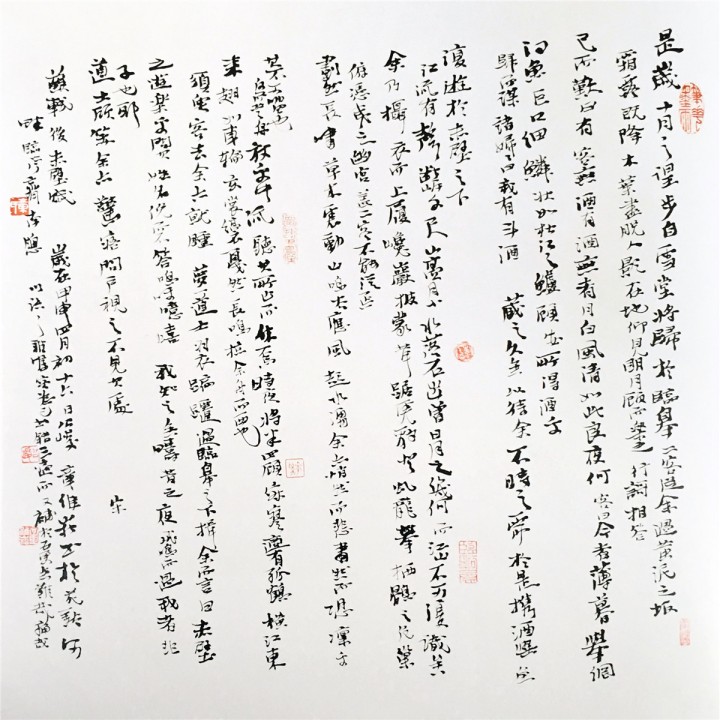 是歲十月之望步自雪堂將歸於臨皋二客從余過黃泥之坂
霜露既降木葉盡脫人影在地仰見明月顧而樂之行謌相答
已而歎曰有客無酒有酒無肴月白風清如此良夜何客曰今者薄暮舉網
得魚巨口細鱗狀如松江之鱸顧安所得酒乎
歸而謀諸婦婦曰我有斗酒藏之久矣以待余不時之需於是攜酒與魚
復遊於赤壁之下
江流有聲斷岸千尺山高月小水落石出曾日月之幾何而江山不可復識矣
余乃攝衣而上履巉巖披蒙茸踞虎豹登虬龍攀棲鶻之危巢
俯馮夷之幽宮蓋二客不能從焉
劃然長嘯草木震動山鳴谷應風起水涌余亦悄然而悲肅然而恐凜乎
其不可留也
反而登舟放乎中流聽其所止而休焉時夜將半四顧寂寥適有孤鶴橫江東
來翅如車輪玄裳縞衣戛然長鳴掠余舟而西也
須臾客去余亦就睡夢道士羽衣蹁躚過臨皋之下揖余而言曰赤壁
之遊樂乎問其姓名俛而不答嗚呼噫嘻我知之矣疇昔之夜飛鳴而過我者非
子也耶
道士顧笑余亦驚寤開戶視之不見其處
歲在甲申四月初十六日